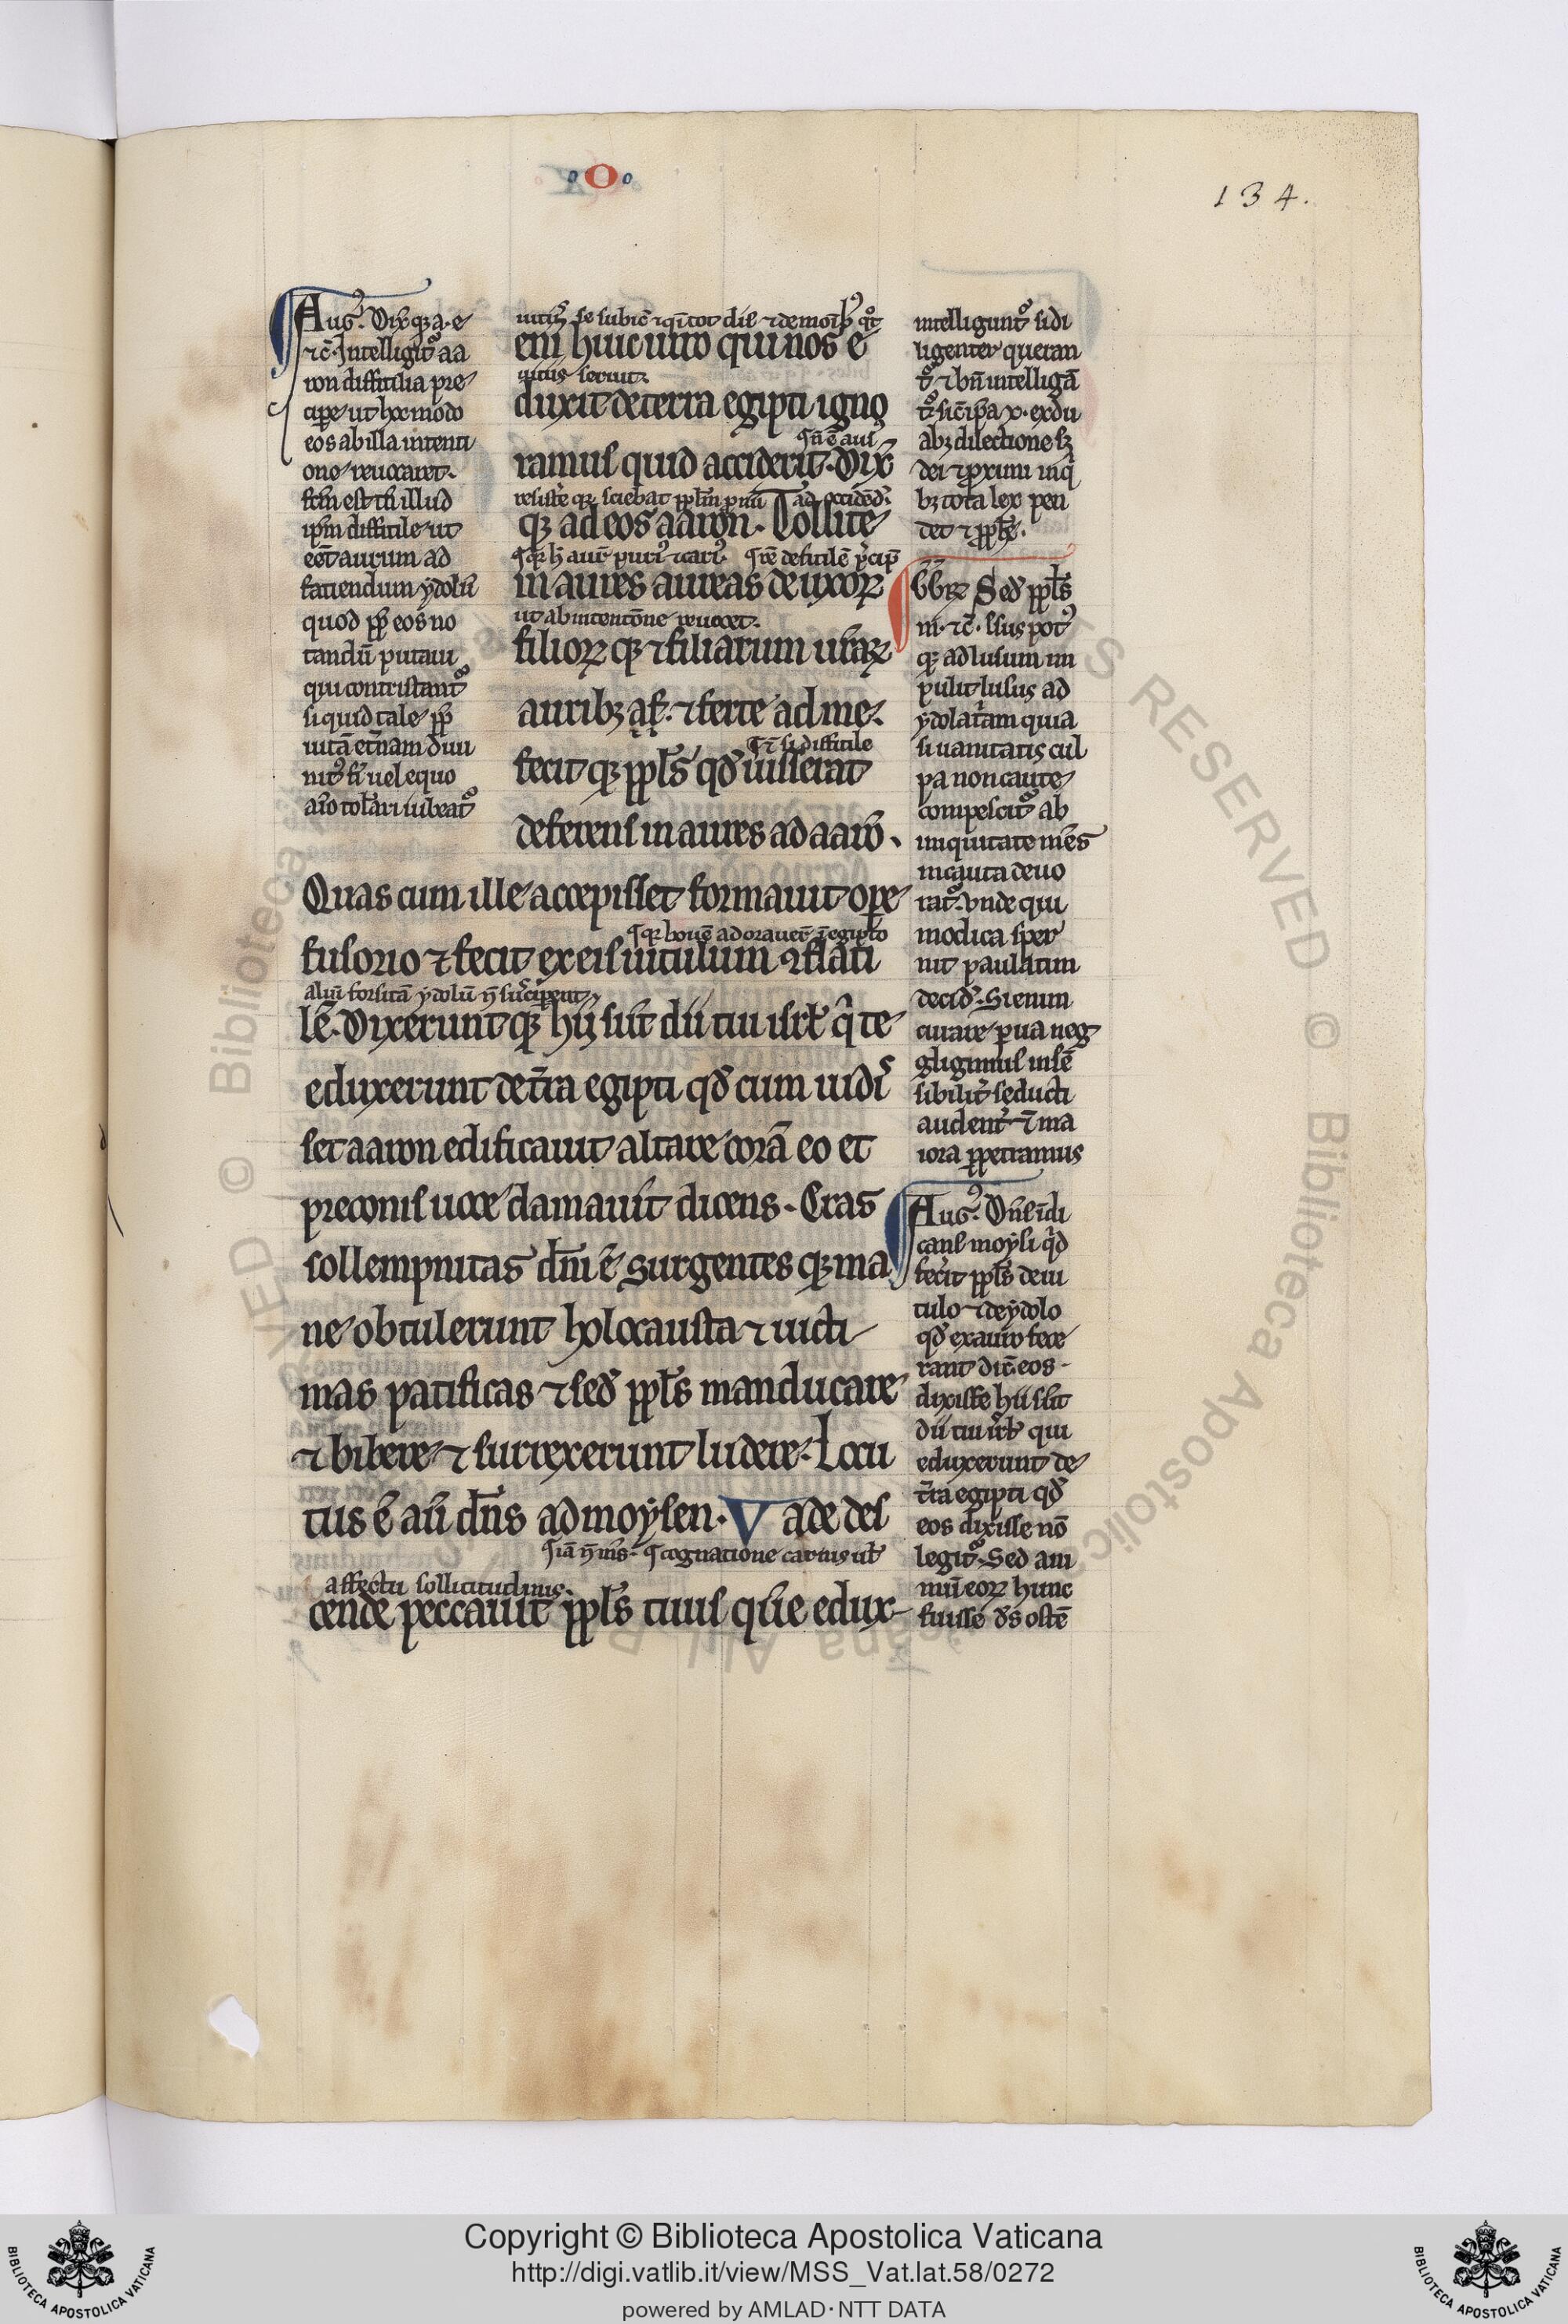 O
134.
Aug9. Dix̄qȝ a. e
⁊c̄. Intelligit̉ aa
ron difficilia pre
cipe ut hoc modo
eos ab illa intenti
one reuocaret.
fc̄m est tn̄ illud
ip̄m difficile ut
eēt aurum ad
faciendum ydolū
quod pp̄ eos no
tandū putaui
qui contristant̉
si quid tale pp̄
uitā et̄nam diui
nit̉
aīo tol̄ari iubeat̉
eni huic uiro qui nos e
uitiis seruit.
duxit de terra egipti igno
ramus quid acciderit. Dix̄
qȝ ad eos aaron. Tollite
in aures aureas de uxorꝝ
ut ab intentōne reuocet.
filiorꝝ qȝ ⁊ filiarum ur̄arꝝ
auribȝ ⁊ ferte ad me.
⁊ si difficile
fecit qȝ ppl̄s qd̄ iusserat
deferens in aures ad aarō.
Quas cum ille accepisset formauit ope
qȝ bouē adorauer̄t ī egipto
fusorio ⁊ fecit ex eis uitulum ꝯflati
aliū forsitā ydolū
lē. Dixerunt qȝ hij sūt dii tui isrl̄ q̄ te
eduxerunt de t̄ra egipti qd̄ cum uidis
set aaron edificauit altare corā eo et
preconis uoce clamauit dicens. Cras
sollempnitas dn̄i ē. Surgentes qȝ ma
ne obtulerunt holocausta ⁊ uicti
mas pacificas ⁊ sed̄ ppl̄s manducare
⁊ bibere ⁊ surrexerunt ludere. Locu
tus ē aū dn̄s ad moysen. Vade des
iā n̄ m̄s. cognatione carnis ut̄
affectu sollicitudinis.
cende peccauit ppl̄s tuus que edux
intelligunt̉ si di
ligenter queran
t̉ ⁊ bn̄ intelligā
t̉ sic̄ ip̄a x. ex du
abȝ dilectione sȝ
dei ⁊ p̄ximi in q̄
bȝ tota lex pen
det ⁊ pph̄e.
Sed̄ ppl̄s
m. ⁊c̄.
qȝ ad lusum im
pulit lusus ad
ydolat̄am quia
si uanitatis cul
pa non caute
compescit̉ ab
iniquitate mēs
incauta deuo
rat̉. Vnde qui
modica sper
nit paulatim
decid̉. Si enim
curare parua neg
gligimus insē
sibilit̉ seducti
audent̉ ⁊ ma
iora ppetramus
Aug9. Dn̄s īdi
cans moysi q̄d
fec̄it ppl̄s de ui
tulo ⁊ de ydolo
qd̄ ex auro fece
rant dic̄ eos
dixisse hii sūt
dii tui isrl̄ qui
eduxerunt de
t̄ra egipti qd̄
eos dixisse nō
legit̉. Sed ani
mū eorꝝ hunc
fuisse ds̄ ostē
Copyright © Biblioteca Apostolica Vaticana
http://digi.vatlib.it/view/MSS_Vat.lat.58/0272
powered by AMLAD·NTT DATA
BIBLIOTECA APOSTOLICA VATICANA
BIBLIOTECA APOSTOLICA VATICANA